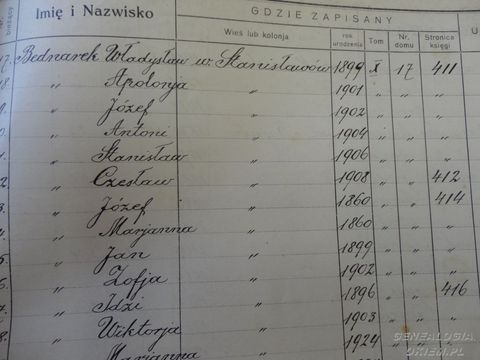 GDZIE ZAPISANY
Imię i Nazwisko
Wieś lub kolonja
rok urodzenia
Tom
Nr. domu
Stronica księgi
U
bieżący
7. Bednarek Władysław w. Stanisławów 1899 X 17 411
8. „ Apolonja „ 1901 „ „ „
9. „ Józef „ 1902 „ „ „
0. „ Antoni „ 1904 „ „ „
1. „ Stanisław „ 1906 „ „ „
2. „ Czesław „ 1908 „ „ 412
3. „ Józef „ 1860 „ „ 414
4. „ Marjanna „ 1860 „ „ „
5. „ Jan „ 1899 „ „ „
6. „ Zofja „ 1902 „ „ „
7. „ Idzi „ 1896 „ „ 416
8. „ Wiktorja „ 1903 „ „ „
„ Marianna „ 1924 „ „ „
GENEALOGIA
OKIEM.PL